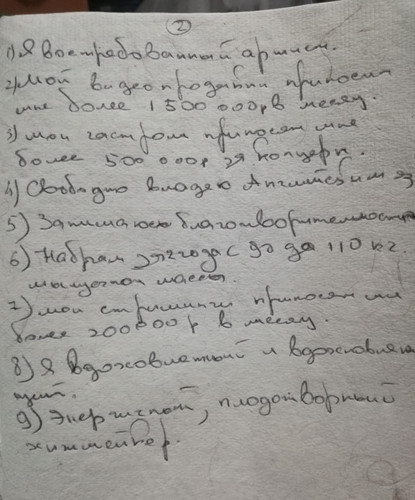 2
1) Я востребованный артист.
2) Мой видеопродакшн приносит
мне более 1 500 000р в месяц.
3) мои гастроли приносят мне
более 500 000р за концерт.
4) Свободно владею Английским яз
5) Занимаюсь благотворительностью
6) Набрал за 2 года с 90 до 110 кг.
мышечной массы.
7) мои стриминги приносят мне
более 200000р в месяц.
8) Я вдохновленный и вдохновляю
щий.
9) Энергичный, плодотворный
хитмейкер.